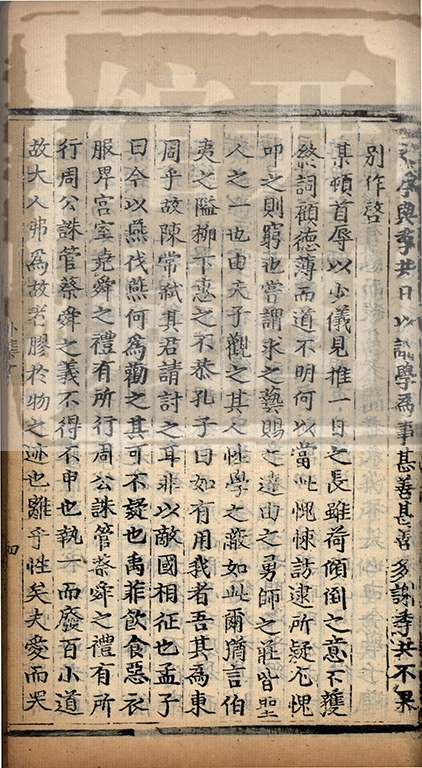 季共日以講學為事甚善甚善多謝季共不果
別作啓
某頓首辱以少儀見推一日之長雖荷傾倒之意下獲
終詞顧德薄而道不明何以當此愧悚訪逮所疑尤愧
叩之則窮也嘗謂求之藝賜之達由之勇師之莊皆聖
人之一也由夫子觀之其人性學之蔽如此爾猶言伯
夷之隘柳下惠之不恭孔子曰如有用我者吾其為東
周乎故陳常弒其君請討之耳非以敵國相征也孟子
曰今以燕伐燕何為勸之其可不疑也禹菲飲食惡衣
服卑宮室堯舜之禮有所行周公誅管蔡舜之禮有所
行周公誅管蔡舜之義不得不申也執一而廢百小道
故大人弗為故老膠於物之迹也離乎性矣夫愛而哭
外集十
四